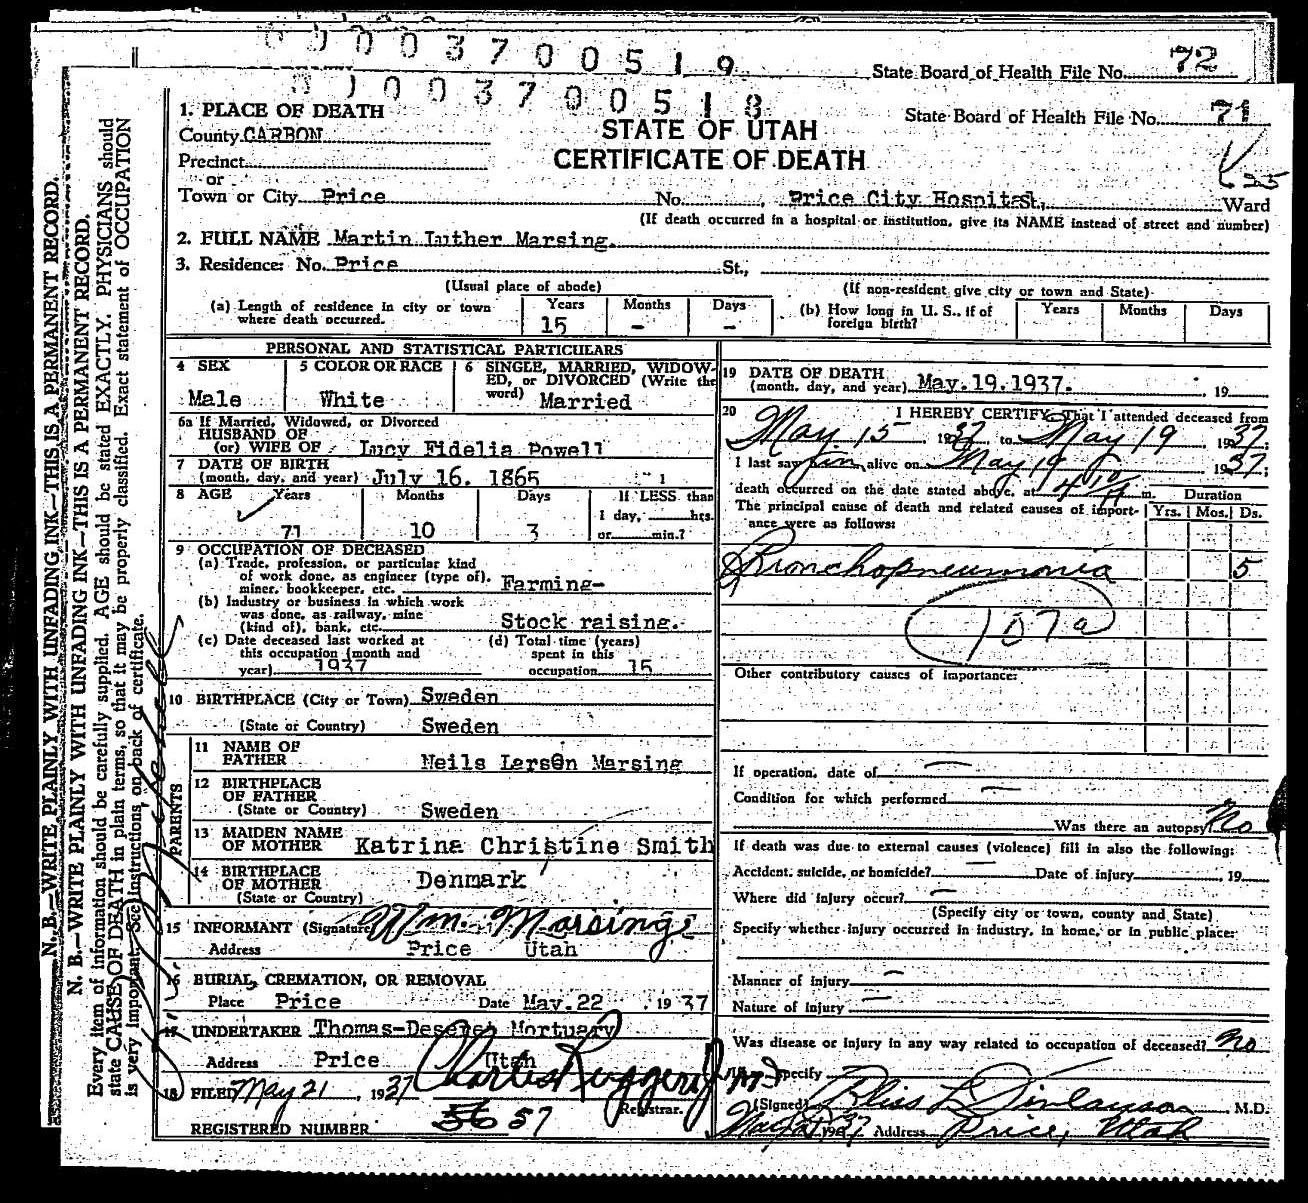 0003700519
State Board of Health File No. 72
0003700518
1. PLACE OF DEATH
State Board of Health File No. 71
County CARBON
STATE OF UTAH
CERTIFICATE OF DEATH
Precinct
or
25
Town or City Price No. , Price City Hospital, St., Ward
(If death occurred in a hospital or institution, give its NAME instead of street and number)
2. FULL NAME Martin Luther Marsing.
3. Residence: No. Price St.,
(Usual place of abode) (If non-resident give city or town and State)
(a) Length of residence in city or town where death occurred. Years 15 Months - Days -
(b) How long in U. S., if of foreign birth? Years Months Days
PERSONAL AND STATISTICAL PARTICULARS
4 SEX Male
5 COLOR OR RACE White
6 SINGLE, MARRIED, WIDOWED, or DIVORCED (Write the word) Married
6a If Married, Widowed, or Divorced
HUSBAND OF
(or) WIFE OF Lucy Fidelia Powell
7 DATE OF BIRTH
(month, day, and year) July 16. 1865
8 AGE Years 71 Months 10 Days 3
If LESS than
1 day, hrs.
or min.?
9 OCCUPATION OF DECEASED
(a) Trade, profession, or particular kind
of work done, as engineer (type of),
miner, bookkeeper, etc. Farming-
(b) Industry or business in which work
was done, as railway, mine
(kind of), bank, etc. Stock raising.
(c) Date deceased last worked at
this occupation (month and
year) 1937
(d) Total time (years)
spent in this
occupation 15
10 BIRTHPLACE (City or Town) Sweden
(State or Country) Sweden
PARENTS
11 NAME OF
FATHER Neils Larson Marsing
12 BIRTHPLACE
OF FATHER
(State or Country) Sweden
13 MAIDEN NAME
OF MOTHER Katrina Christine Smith
14 BIRTHPLACE
OF MOTHER Denmark
(State or Country)
15 INFORMANT (Signature) Wm. Marsing
Address Price Utah
16 BURIAL, CREMATION, OR REMOVAL
Place Price Date May.22 1937
17 UNDERTAKER Thomas-Deseret Mortuary
Address Price Utah
18 FILED May 21, 1937 Charles Ruggeri Jr MD
Registrar.
REGISTERED NUMBER 56 57
19 DATE OF DEATH
(month, day, and year) May.19.1937. , 19
20 I HEREBY CERTIFY, That I attended deceased from
May 15 1937, to May 19 1937;
I last saw him alive on May 19 1937;
death occurred on the date stated above, at 4 10 A m. Duration
The principal cause of death and related causes of importance were as follows: Yrs. Mos. Ds.
Bronchopneumonia 5
107a
Other contributory causes of importance:
If operation, date of
Condition for which performed
Was there an autopsy? No
If death was due to external causes (violence) fill in also the following:
Accident, suicide, or homicide? Date of injury , 19
Where did injury occur?
(Specify city or town, county and State)
Specify whether injury occurred in industry, in home, or in public place:
Manner of injury
Nature of injury
Was disease or injury in any way related to occupation of deceased? No
Specify
(Signed) Bliss L Finlayson, M.D.
1937 Address Price, Utah
N. B.—WRITE PLAINLY WITH UNFADING INK—THIS IS A PERMANENT RECORD.
N. B.—WRITE PLAINLY WITH UNFADING INK—THIS IS A PERMANENT RECORD.
Every item of information should be carefully supplied. AGE should be stated EXACTLY. PHYSICIANS should
state CAUSE OF DEATH in plain terms, so that it may be properly classified. Exact statement of OCCUPATION
is very important. See instructions on back of certificate.